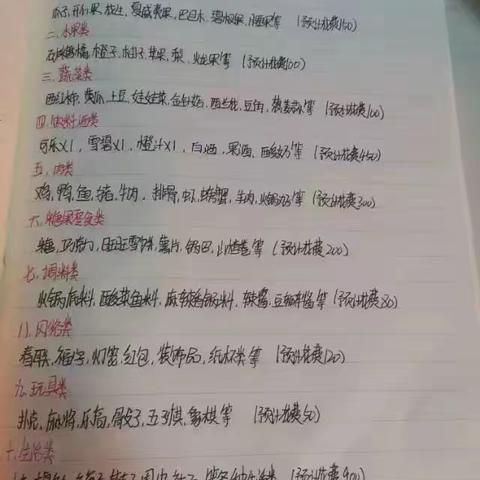 瓜子,开心果,花生,夏威夷果,巴旦木,碧根果,腰果等 (预计花费150)
二、水果类
砂糖橘,橙子,柚子,苹果,梨,火龙果等 (预计花费100)
三、蔬菜类
西红柿,黄瓜,土豆,娃娃菜,金针菇,西兰花,豆角,葱姜蒜等 (预计花费100)
四、饮料酒类
可乐X1,雪碧X1,橙汁X1,白酒,果酒,酸奶等 (预计花费450)
五、肉类
鸡,鸭,鱼,猪,牛肉,排骨,虾,螃蟹,羊肉,火锅丸子等 (预计花费300)
六、糖果零食类
糖,巧克力,旺旺雪饼,薯片,锅巴,山楂卷等 (预计花费200)
七、调料类
火锅底料,酸菜鱼料,麻辣香锅料,辣酱,豆瓣酱等 (预计花费80)
八、风俗类
春联,福字,灯笼,红包,装饰品,纸杯类等 (预计花费120)
九、玩具类
扑克,麻将,乐高,骰子,五子棋,象棋等 (预计花费50)
十、生活类
(预计花费900)